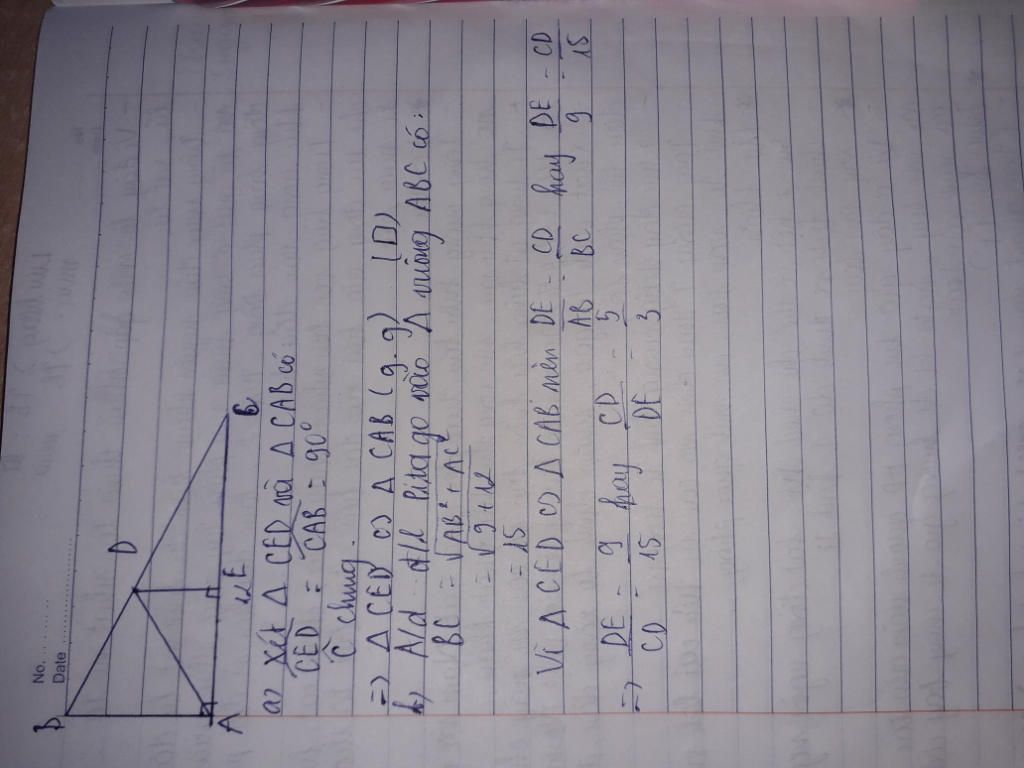 No. ..........
Date ....................
B
D
A
12
E
C
a) Xét Δ CED và Δ CAB có:
CED = CAB = 90°
C chung.
=> Δ CED ∽ Δ CAB (g.g) (D)
b) A/d đ/l Pitago vào Δ vuông ABC có:
BC = √AB² + AC²
= √9 + 12
= 15
Vì Δ CED ∽ Δ CAB nên DE/AB = CD/BC hay DE/9 = CD/15
=> DE/CD = 9/15 hay CD/DE = 5/3